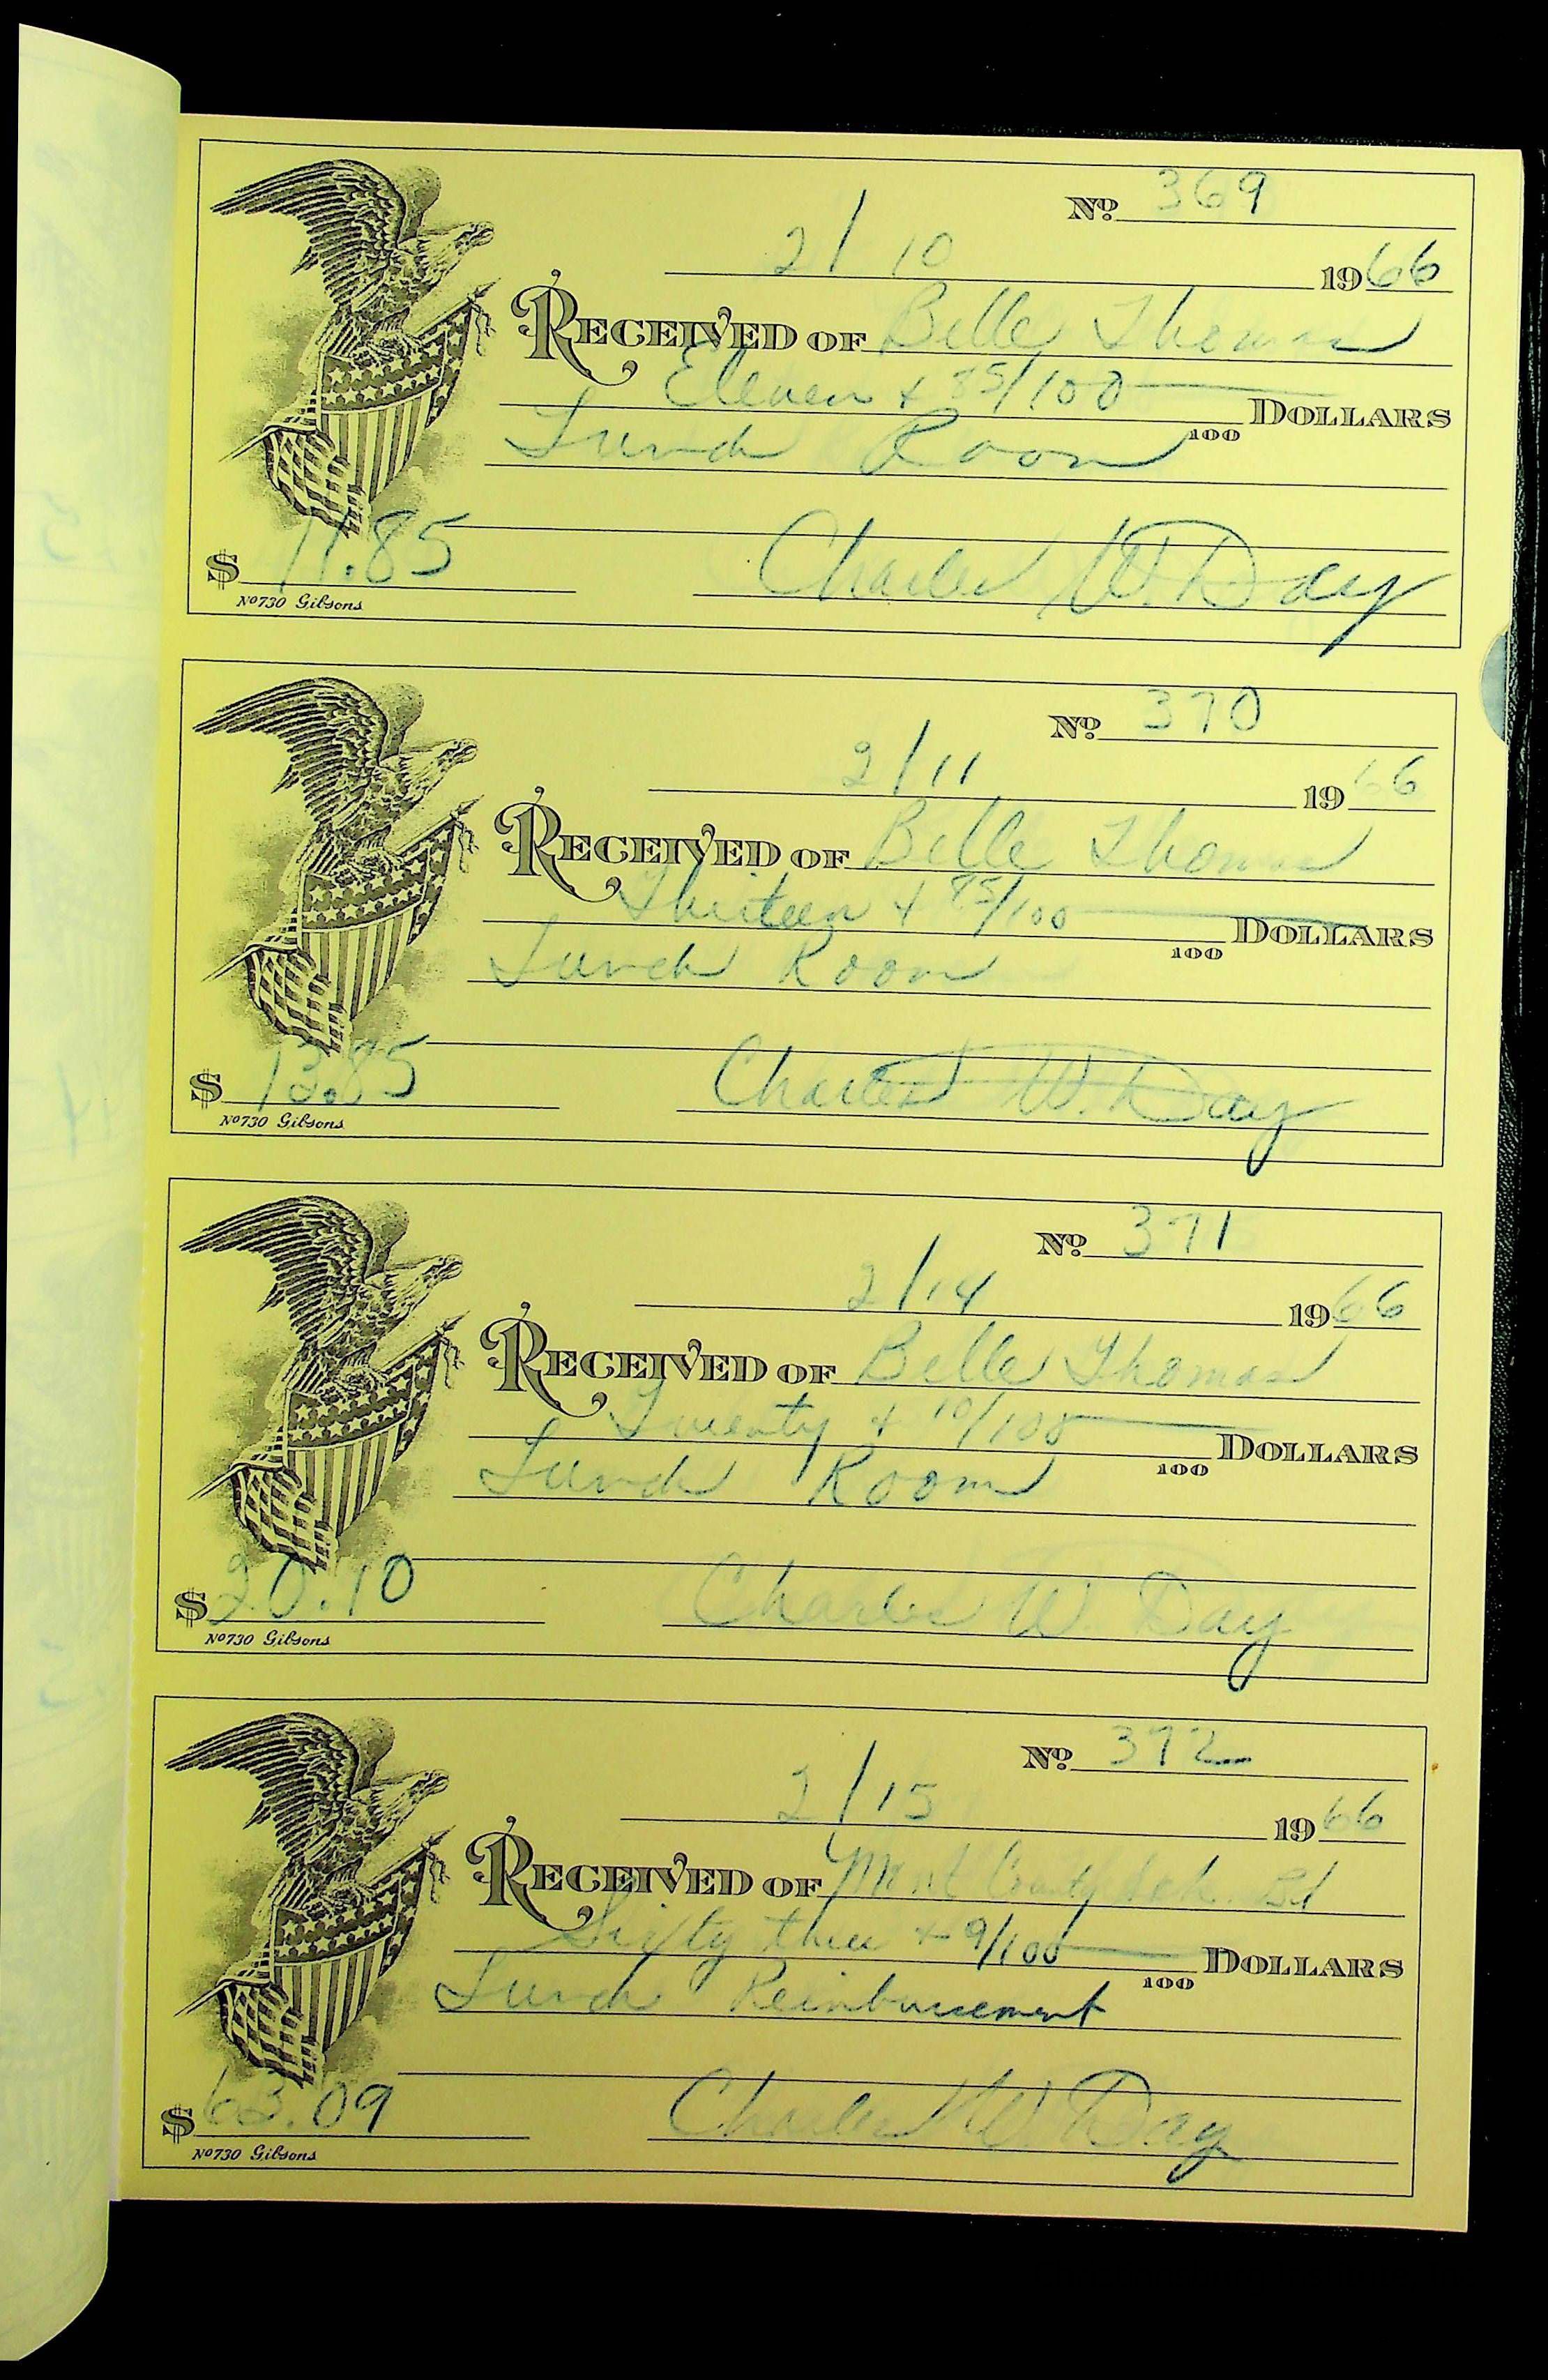 No. 369
2/10 1966
RECEIVED OF Belle Thomas
Eleven + 85/100 100 DOLLARS
Lunch Room
$ 11.85 Charles W. Day
No 730 Gibsons
No. 370
2/11 1966
RECEIVED OF Belle Thomas
Thirteen + 85/100 100 DOLLARS
Lunch Room
$ 13.85 Charles W. Day
No 730 Gibsons
No. 371
2/14 1966
RECEIVED OF Belle Thomas
Twenty + 10/100 100 DOLLARS
Lunch Room
$ 20.10 Charles W. Day
No 730 Gibsons
No. 372
2/15 1966
RECEIVED OF Mont County Sch. Bd
Sixty three + 9/100 100 DOLLARS
Lunch Reimbursement
$ 63.09 Charles W. Day
No 730 Gibsons